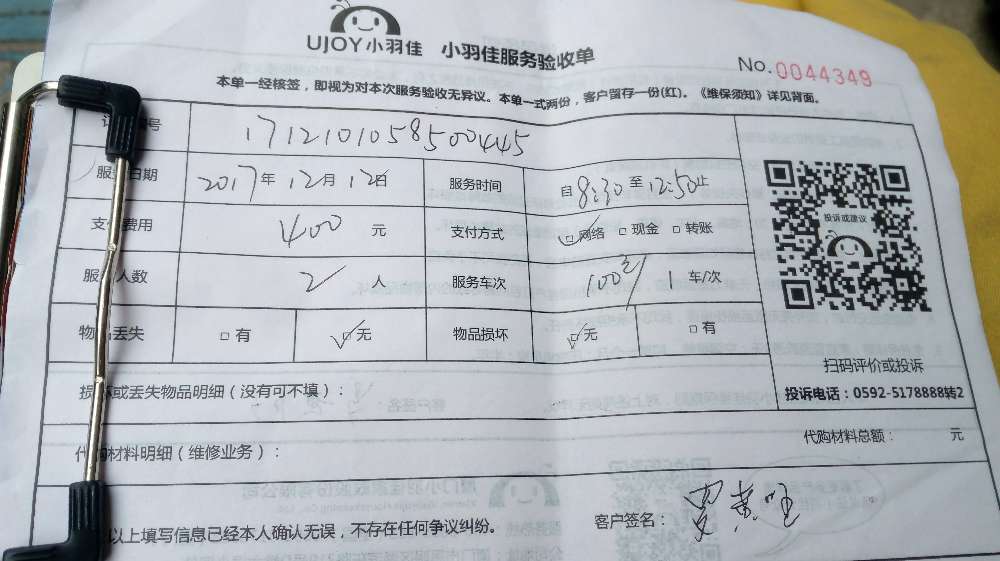 UJOY小羽佳 小羽佳服务验收单
No.0044349
本单一经核签，即视为对本次服务验收无异议。本单一式两份，客户留存一份(红)。《维保须知》详见背面。
编号 1712101058500445
服务日期 2017年 12月 12日 服务时间 自 8:30 至 12:50 止
支付费用 400 元 支付方式 □网络 □现金 □转账
服务人数 2 人 服务车次 100元/ 1 车/次
物品丢失 □有 □无 物品损坏 □无 □有
投诉或建议
扫码评价或投诉
投诉电话：0592-5178888转2
损坏或丢失物品明细（没有可不填）：
代购材料总额： 元
代购材料明细（维修业务）：
以上填写信息已经本人确认无误，不存在任何争议纠纷。
客户签名：